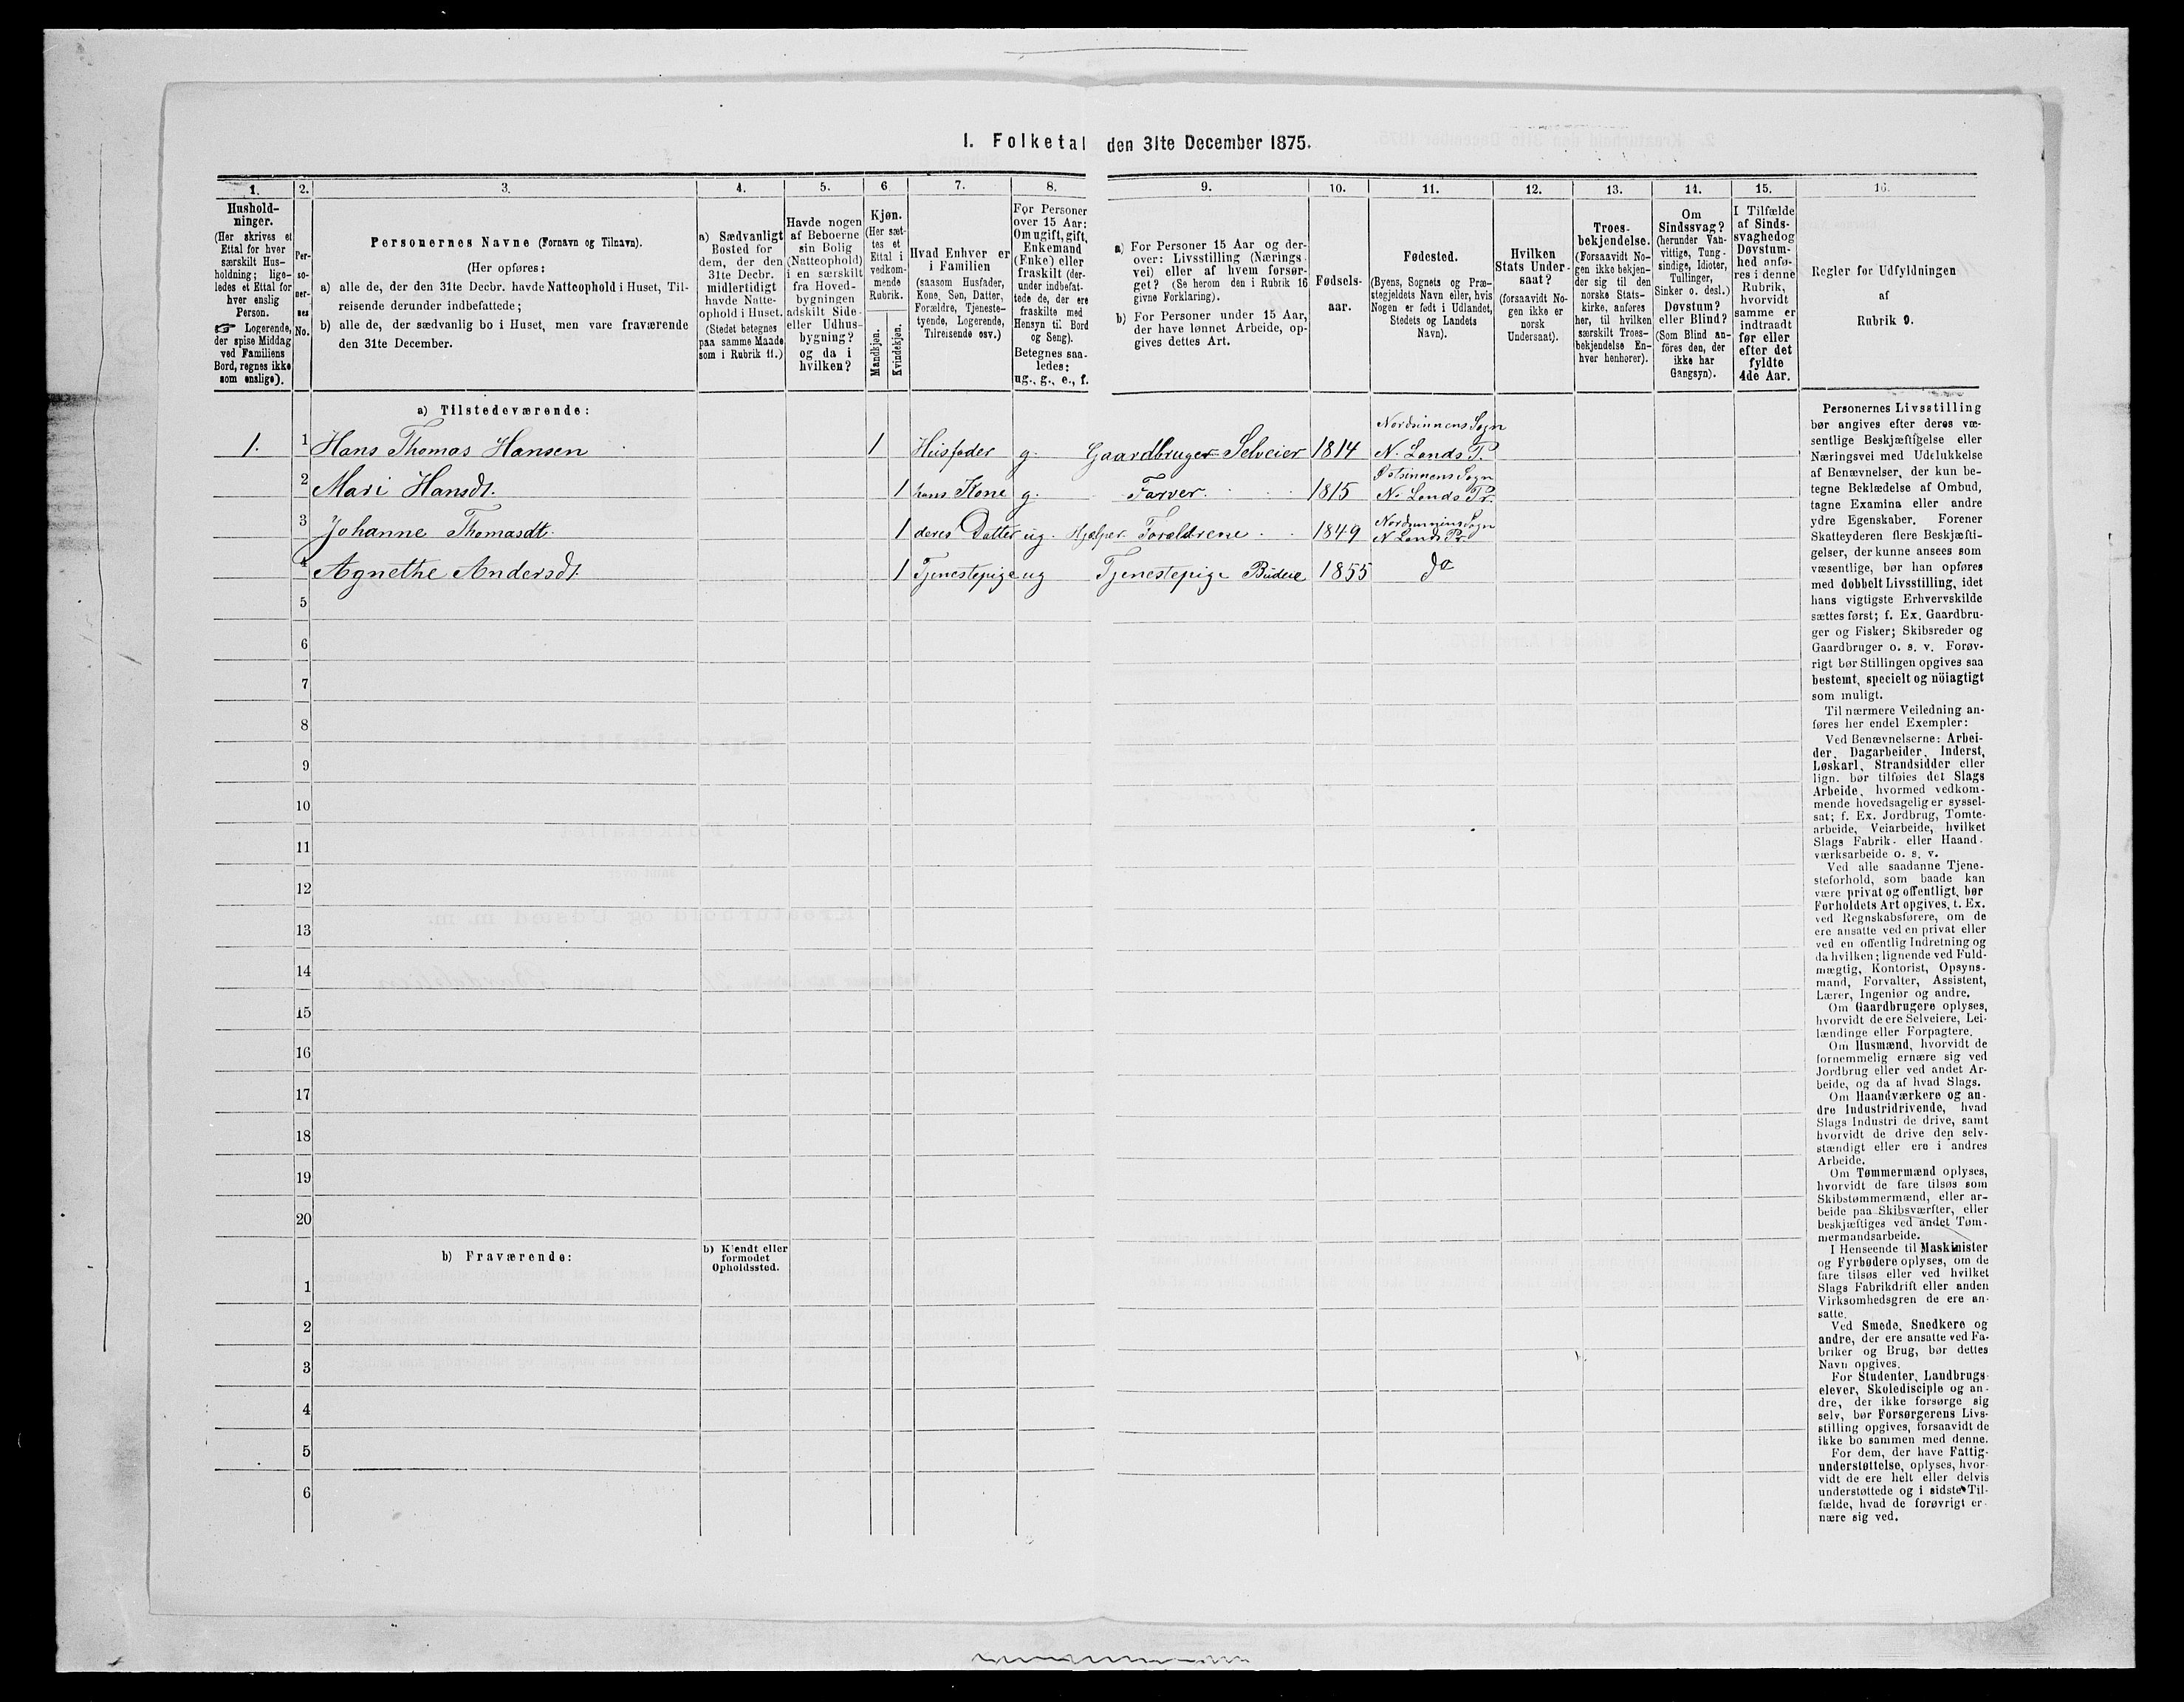 1. Folketal den 31te December 1875.
1. 2. 3. 4. 5. 6 7. 8. 9. 10. 11. 12. 13. 11. 15. 16.
Hushold-
ninger.
(Her skrives et
Ettal for hver
særskilt Hus-
holdning; lige-
ledes et Ettal for
hver enslig
Person.
☞ Logerende,
der spise Middag
ved Familiens
Bord, regnes ikke
som enslige).
Per-
so-
ner-
nes
No.
Personernes Navne (Fornavn og Tilnavn).
(Her opføres:
a) alle de, der den 31te Decbr. havde Natteophold i Huset, Til-
reisende derunder indbefattede;
b) alle de, der sædvanlig bo i Huset, men vare fraværende
den 31te December.
a) Sædvanligt
Bosted for
dem, der den
31te Decbr.
midlertidigt
havde Natte-
ophold i Huset.
(Stedet betegnes
paa samme Maade
som i Rubrik 11.)
Havde nogen
af Beboerne
sin Bolig
(Natteophold)
i en særskilt
fra Hoved-
bygningen
adskilt Side-
eller Udhus-
bygning?
og da i
hvilken?
Kjøn.
(Her sæt-
tes et
Ettal i
vedkom-
mende
Rubrik.
Mandkjøn.
Kvindekjøn.
Hvad Enhver er
i Familien
(saasom Husfader,
Kone, Søn, Datter,
Forældre, Tjeneste-
tyende, Logerende,
Tilreisende osv.)
For Personer
over 15 Aar:
Om ugift, gift,
Enkemand
(Enke) eller
fraskilt (der-
under indbefat-
tede de, der ere
fraskilte med
Hensyn til Bord
og Seng).
Betegnes saa-
ledes:
ug., g., e., f.
a) For Personer 15 Aar og der-
over: Livsstilling (Nærings-
vei) eller af hvem forsør-
get? (Se herom den i Rubrik 16
givne Forklaring).
b) For Personer under 15 Aar,
der have lønnet Arbeide, op-
gives dettes Art.
Fødsels-
aar.
Fødested.
(Byens, Sognets og Præ-
stegjeldets Navn eller, hvis
Nogen er født i Udlandet,
Stedets og Landets
Navn).
Hvilken
Stats Under-
saat?
(forsaavidt No-
gen ikke er
norsk
Undersaat).
Troes-
bekjendelse.
(Forsaavidt No-
gen ikke bekjen-
der sig til den
norske Stats-
kirke, anføres
her, til hvilken
særskilt Troes-
bekjendelse En-
hver henhører).
Om
Sindssvag?
(herunder Van-
vittige, Tung-
sindige, Idioter,
Tullinger,
Sinker o. desl.)
Døvstum?
eller Blind?
(Som Blind an-
föres den, der
ikke har
Gangsyn).
I Tilfælde
af Sinds-
svaghed og
Døvstum-
hed anfø-
res i denne
Rubrik,
hvorvidt
samme er
indtraadt
før eller
efter det
fyldte
4de Aar.
Regler for Udfyldningen
af
Rubrik 9.
a) Tilstedeværende:
1. 1 Hans Thomas Hansen 1 Husfader g. Gaardbruger Selveier 1814 Nordsinnens Sogn N. Lands P.
2 Mari Hansdt. 1 hans Kone g. Farver. 1815 Østsinnens Sogn N. Lands Pr.
3 Johanne Thomasdt. 1 deres Datter ug. Hjælper Forældrene 1849 Nordsinnens Sogn N Lands Pr.
4 Agnethe Andersdt. 1 Tjenestepige ug Tjenestepige Budeie 1855 do
5
6
7
8
9
10
11
12
13
14
15
16
17
18
19
20
b) Fraværende:
b) Kjendt eller
formodet
Opholdssted.
1
2
3
4
5
6
Personernes Livsstilling
bør angives efter deres væ-
sentlige Beskjæftigelse eller
Næringsvei med Udelukkelse
af Benævnelser, der kun be-
tegne Beklædelse af Ombud,
tagne Examina eller andre
ydre Egenskaber. Forener
Skatteyderen flere Beskjæfti-
gelser, der kunne ansees som
væsentlige, bør han opføres
med dobbelt Livsstilling, idet
hans vigtigste Erhvervskilde
sættes først; f. Ex. Gaardbru-
ger og Fisker; Skibsreder og
Gaardbruger o. s. v. Forøv-
rigt bør Stillingen opgives saa
bestemt, specielt og nöiagtigt
som muligt.
Til nærmere Veiledning an-
føres her endel Exempler:
Ved Benævnelserne: Arbei-
der, Dagarbeider, Inderst,
Løskarl, Strandsidder eller
lign. bør tilføies det Slags
Arbeide, hvormed vedkom-
mende hovedsagelig er syssel-
sat; f. Ex. Jordbrug, Tomte-
arbeide, Veiarbeide, hvilket
Slags Fabrik- eller Haand-
værksarbeide o. s. v.
Ved alle saadanne Tjene-
steforhold, som baade kan
være privat og offentligt, bør
Forholdets Art opgives, t. Ex.
ved Regnskabsførere, om de
ere ansatte ved en privat eller
ved en offentlig Indretning og
da hvilken; lignende ved Fuld-
mægtig, Kontorist, Opsyns-
mand, Forvalter, Assistent,
Lærer, Ingeniør og andre.
Om Gaardbrugere oplyses,
hvorvidt de ere Selveiere, Lei-
lændinge eller Forpagtere.
Om Husmænd, hvorvidt de
fornemmelig ernære sig ved
Jordbrug eller ved andet Ar-
beide, og da af hvad Slags.
Om Haandværkere og an-
dre Industridrivende, hvad
Slags Industri de drive, samt
hvorvidt de drive den selv-
stændigt eller ere i andres
Arbeide.
Om Tømmermænd oplyses,
hvorvidt de fare tilsøs som
Skibstømmermænd, eller ar-
beide paa Skibsværfter, eller
beskjæftiges ved andet Tøm-
mermandsarbeide.
I Henseende til Maskinister
og Fyrbødere oplyses, om de
fare tilsøs eller ved hvilket
Slags Fabrikdrift eller anden
Virksomhedsgren de ere an-
satte.
Ved Smede, Snedkere og
andre, der ere ansatte ved Fa-
briker og Brug, bør dettes
Navn opgives.
For Studenter, Landbrugs-
elever, Skoledisciple og an-
dre, der ikke forsørge sig
selv, bør Forsørgerens Livs-
stilling opgives, forsaavidt de
ikke bo sammen med denne.
For dem, der have Fattig-
understøttelse, oplyses, hvor-
vidt de ere helt eller delvis
understøttede og i sidste Til-
fælde, hvad de forøvrigt er-
nære sig ved.